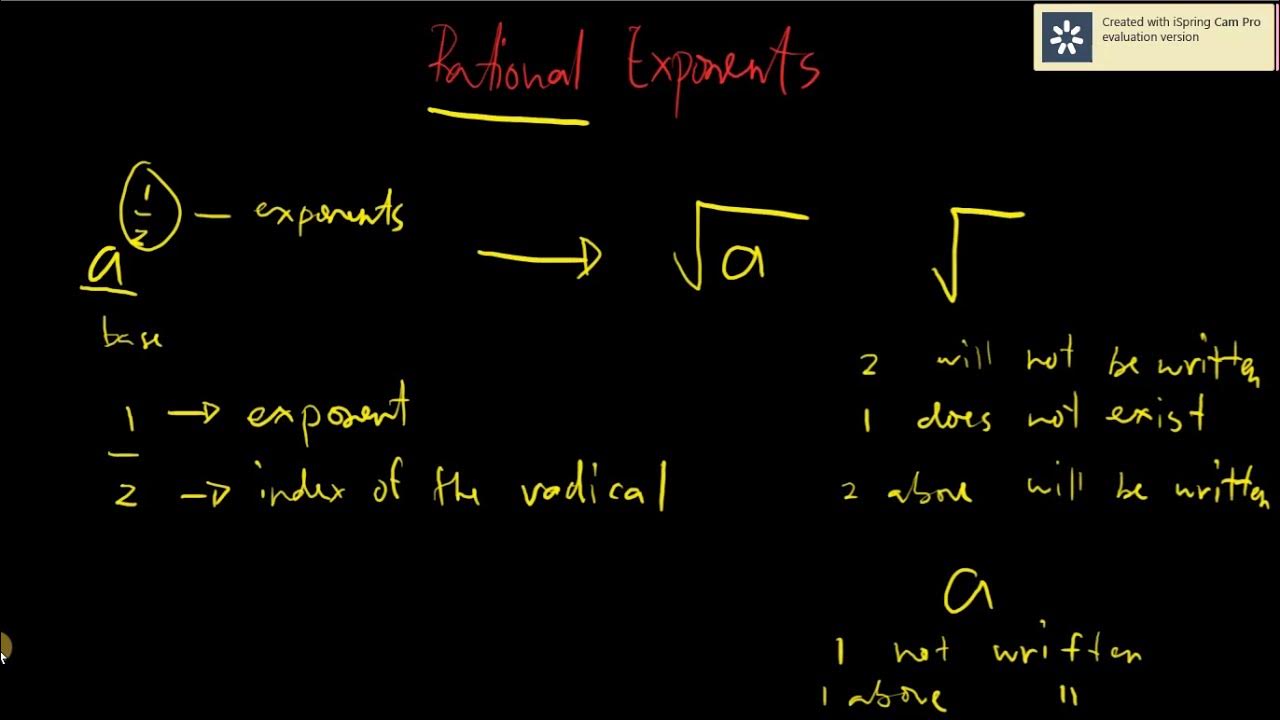 Created with iSpring Cam Pro
evaluation version
Rational Exponents
a^(1/2) — exponents → √a √
base
1 → exponent
2 → index of the radical
2 will not be written
1 does not exist
2 above will be written
a
1 not written
1 above "